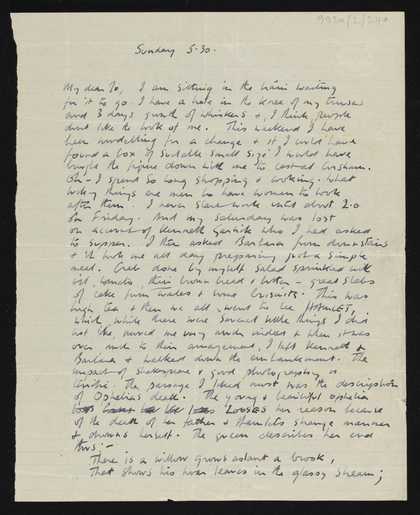 Sunday 5.30.
My dear Jo, I am sitting in the train waiting
for it to go. I have a hole in the knee of my trouser
and 3 days growth of whiskers & I think people
dont like the look of me. This weekend I have
been modelling for a change & if I could have
found a box of suitable small size I would have
the figure down with me to
Oh – I spend so long shopping & cooking. What
lucky things are men who have women to look
after them. I never start work until about 2.0
on Friday. And my Saturday was lost
on account of Kenneth who I had asked
to supper. I then asked Barbara from downstairs
& it took me all day preparing just a simple
meal. Crab done by myself salad sprinkled with
tomatoes, thin brown bread & butter – great slabs
of cake from & some biscuits. This was
high tea & then we all went to see HAMLET,
which while there were several little things I did
not like moved me very much indeed & when it was
over much to their amazement, I left Kenneth &
Barbara & walked down the embankment. The
impact of Shakespeare & good photography is
terrific. The passage I liked most was the description
of Ophelias death. The young & beautiful Ophelia
looses her reason because
of the death of her father & Hamlets strange manner
& drowns herself. The queen describes her end
thus: –
There is a willow grows aslant a brook,
That shows his hoar leaves in the glassy stream;